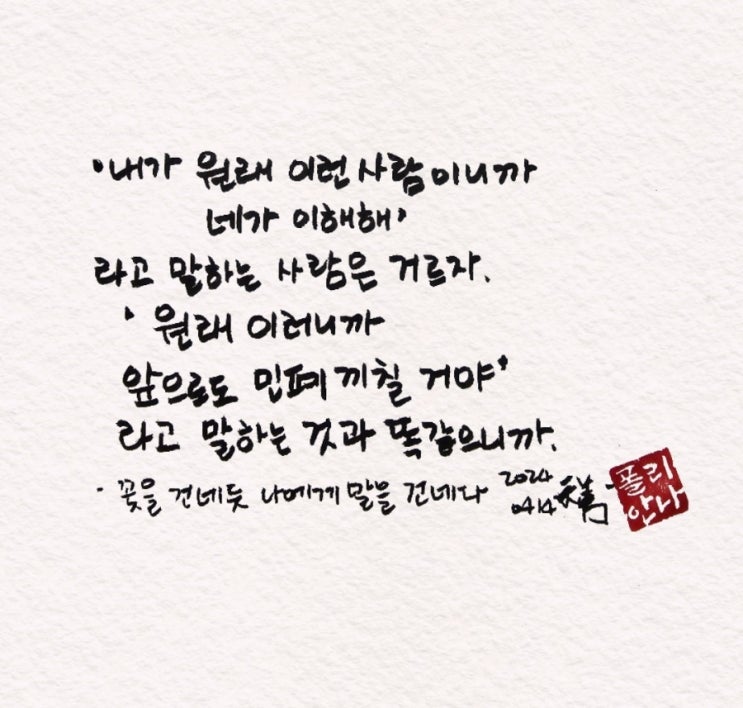 '내가 원래 이런 사람이니까
네가 이해해'
라고 말하는 사람은 거르자.
'원래 이러니까
앞으로도 민폐 끼칠 거야'
라고 말하는 것과 똑같으니까.
- 꽃을 건네듯 나에게 말을 건네다 -
2024
0414
폴리
안나